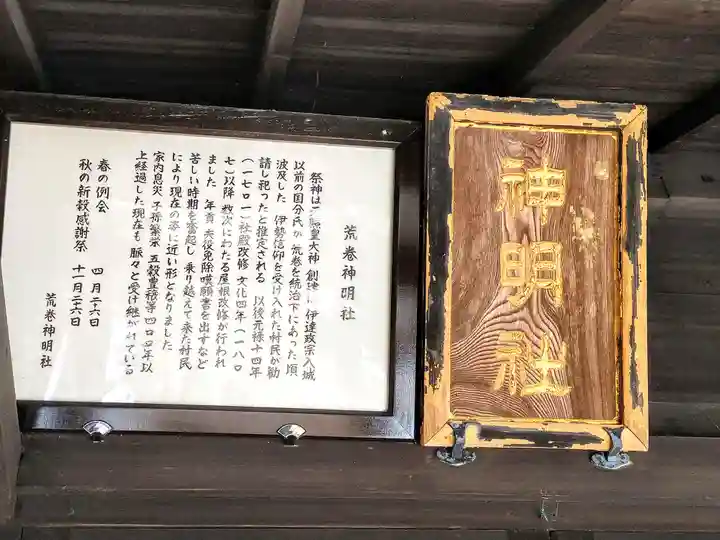 荒巻神明社
祭神は天照皇大神 創建は 伊達政宗入城
以前の国分氏が 荒巻を統治下にあった頃
波及した 伊勢信仰を受け入れた村民が勧
請し祀ったと推定される 以後元禄十四年
(一七〇一)社殿改修 文化四年(一八〇
七)以降 数次にわたる屋根改修が行われ
ました 年貢 夫役免除嘆願書を出すなど
苦しい時期を奮起し 乗り越えて来た村民
により現在の姿に近い形となりました
家内息災 子孫繁栄 五穀豊穣等 四〇四年以
上経過した現在も 脈々と受け継がれている
春の例会 四月二六日
秋の新穀感謝祭 十一月二六日
荒巻神明社
神明社